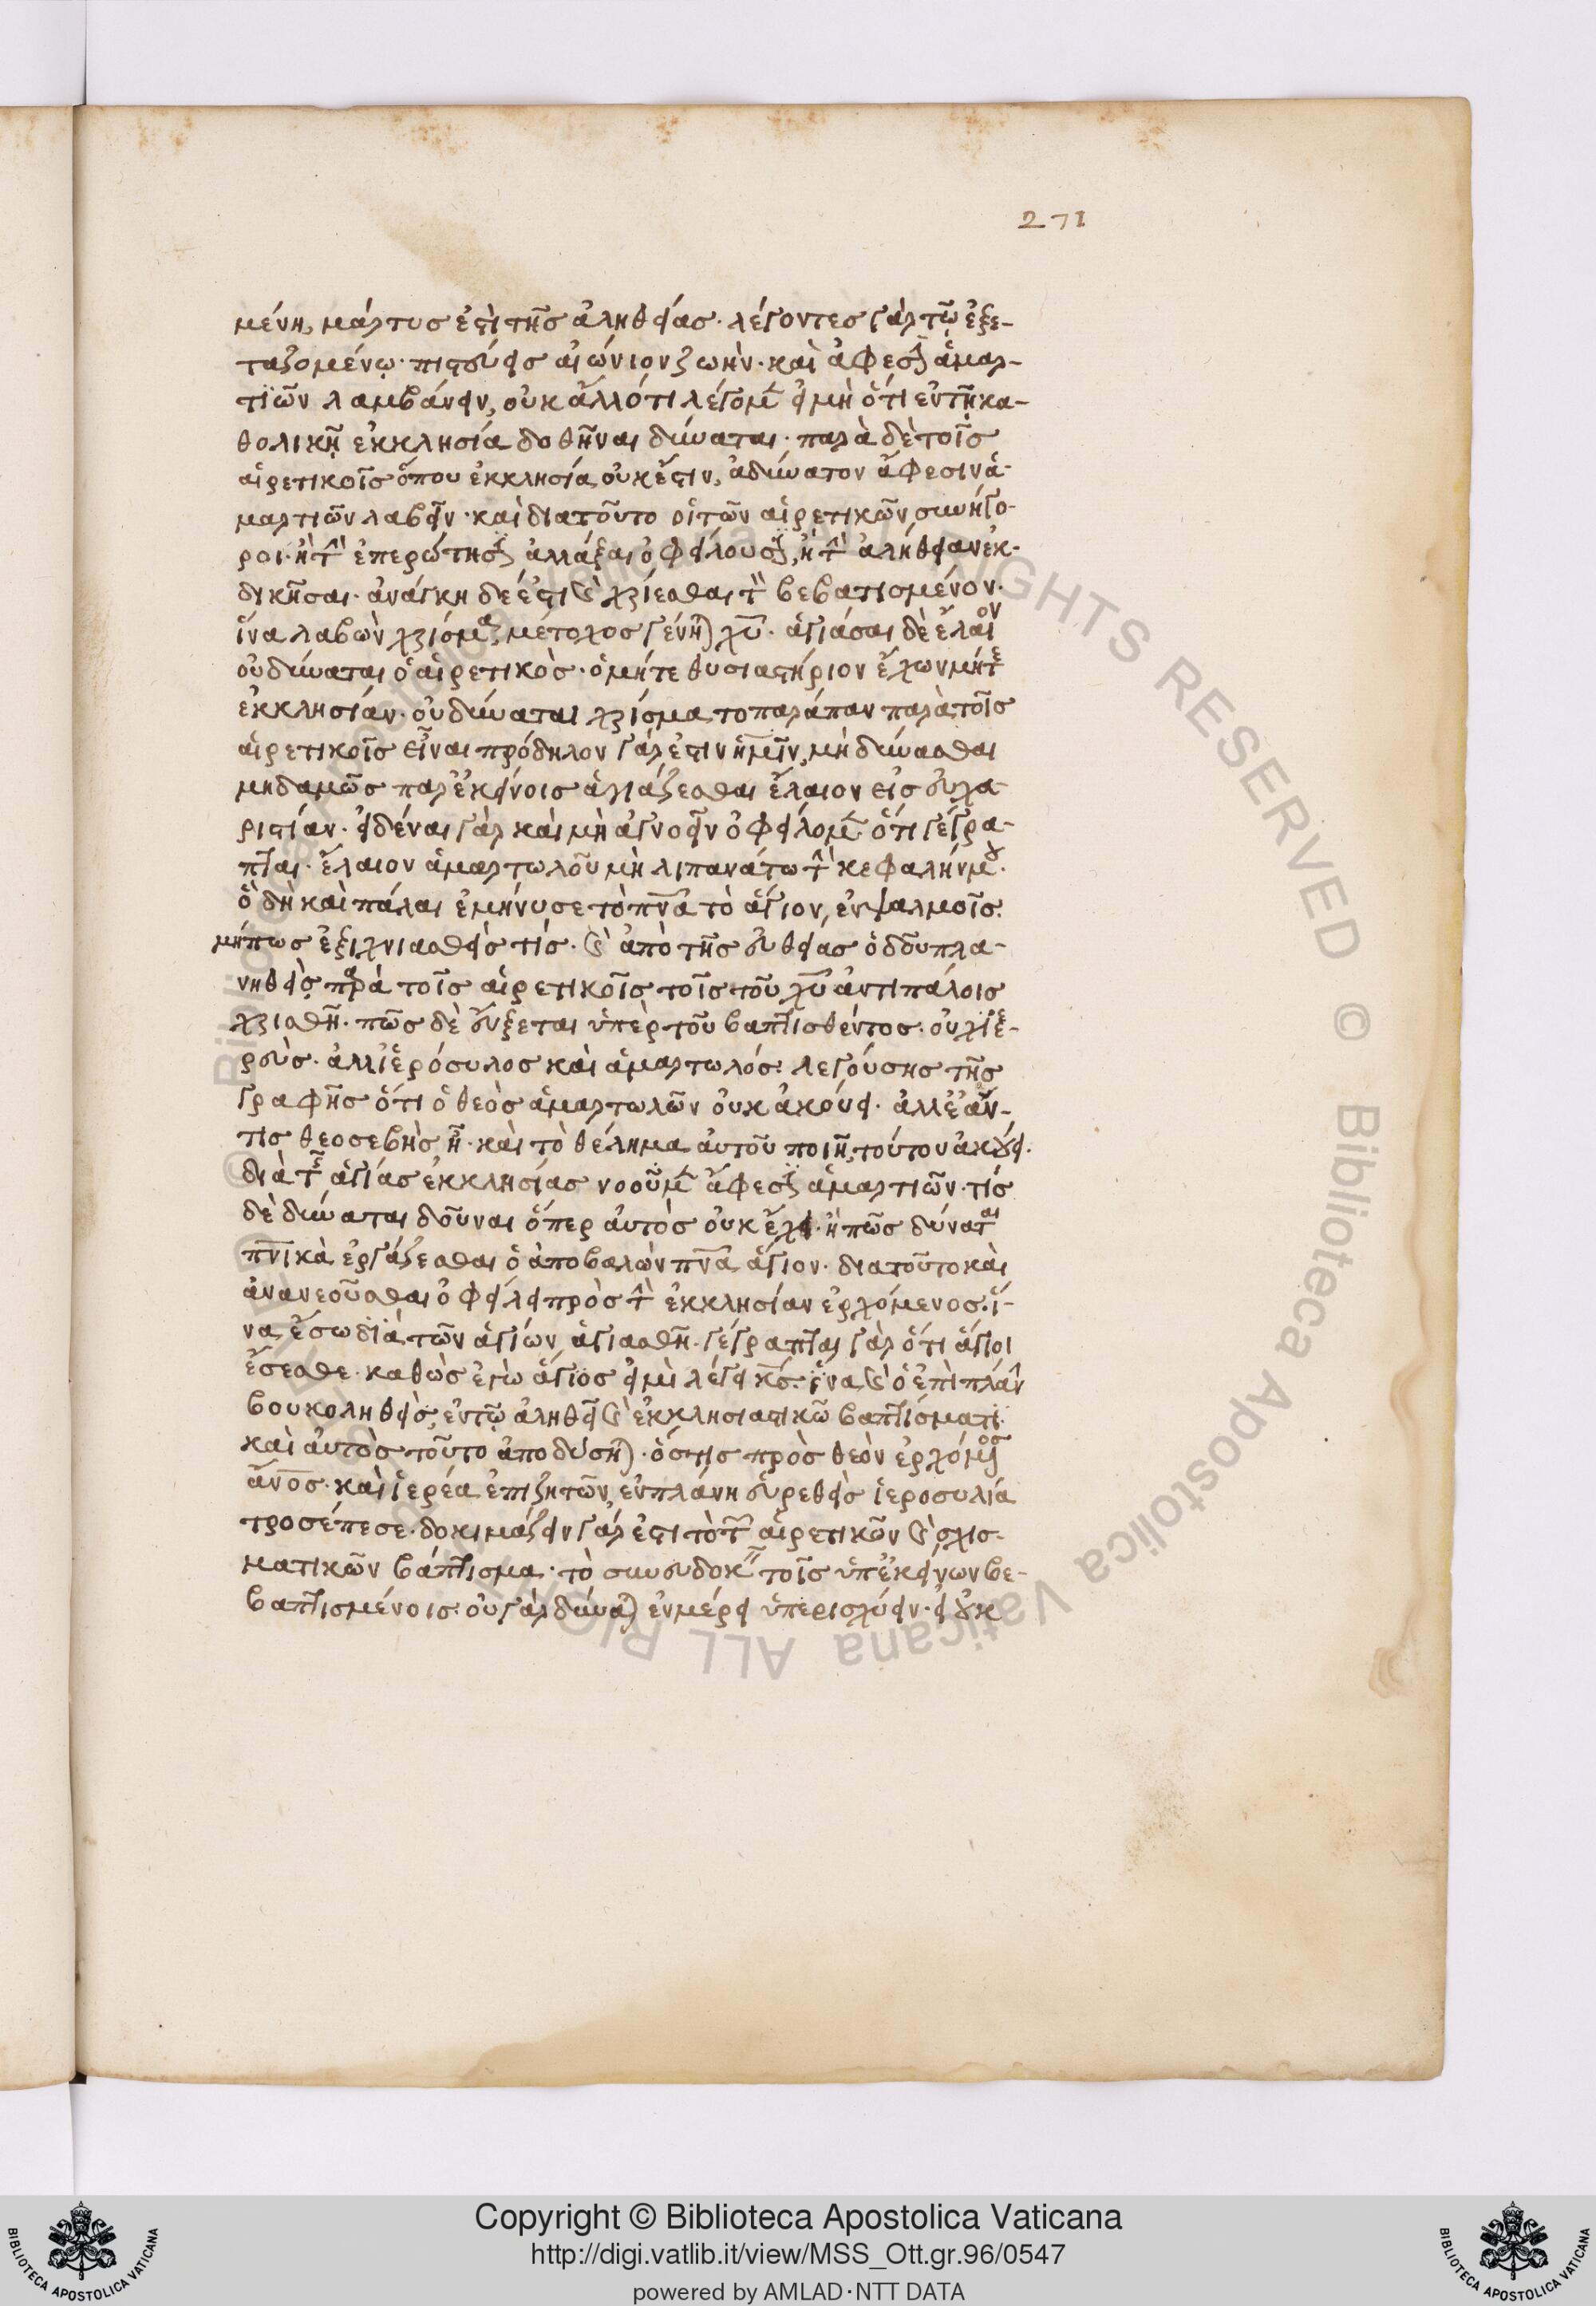 271
μένη, μάρτυς ἐστὶ τῆς ἀληθείας· λέγοντες γὰρ τῷ ἐξε-
ταζομένῳ· πιστεύεις αἰώνιον ζωὴν· καὶ ἄφεσιν ἁμαρ-
τιῶν λαμβάνειν, οὐκ ἄλλό τι λέγομεν εἰ μὴ ὅτι ἐν τῇ κα-
θολικῇ ἐκκλησία δοθῆναι δύναται· παρὰ δὲ τοῖς
αἱρετικοῖς ὅπου ἐκκλησία οὐκ ἔστιν, ἀδύνατον ἄφεσιν ἁ-
μαρτιῶν λαβεῖν· καὶ διατοῦτο οἱ τῶν αἱρετικῶν συνήγο-
ροι· ἢ τὴν ἐπερώτησιν ἀλλάξαι ὀφείλουσιν, ἢ τὴν ἀλήθειαν ἐκ-
δικῆσαι· ἀνάγκη δέ ἐστι καὶ χρίεσθαι τὸν βεβατισμένον·
ἵνα λαβὼν χρίσμα, μέτοχος γένηται χυ· ἁγιάσαι δὲ ἔλαιον
οὐ δύναται ὁ αἱρετικὸς· ὁ μήτε θυσιαστήριον ἔχων μήτε
ἐκκλησίαν· οὐ δύναται χρίσμα τοπαράπαν παρὰ τοῖς
αἱρετικοῖς εἶναι πρόδηλον γάρ ἐστιν ἡμῖν, μὴ δύνασθαι
μηδαμῶς παρ' ἐκείνοις ἁγιάζεσθαι ἔλαιον εἰς εὐχα-
ριστίαν· εἰδέναι γὰρ καὶ μὴ ἀγνοεῖν ὀφείλομεν ὅτι γέγρα-
πται· ἔλαιον ἁμαρτωλοῦ μὴ λιπανάτω τὴν κεφαλήν μου·
ὃ δὴ καὶ πάλαι ἐμήνυσε τὸ πνα τὸ ἅγιον, ἐν ψαλμοῖς·
μήπως ἐξιχνιασθείς τίς· καὶ ἀπὸ τῆς εὐθείας ὁδοῦ πλα-
νηθεὶς παρὰ τοῖς αἱρετικοῖς τοῖς τοῦ χυ ἀντιπάλοις
χρισθῆ· πῶς δὲ εὔξεται ὑπὲρ τοῦ βαπτισθέντος· οὐχ ἱε-
ρεὺς· ἀλλ' ἱερόσυλος καὶ ἁμαρτωλός· λεγούσης τῆς
γραφῆς ὅτι ὁ θεὸς ἁμαρτωλῶν οὐκ ἀκούει· ἀλλ' ἐάν-
τις θεοσεβὴς ἦ· καὶ τὸ θέλημα αὐτοῦ ποιῆ, τούτου ἀκούει·
διὰ τῆς ἁγίας ἐκκλησίας νοοῦμεν ἄφεσιν ἁμαρτιῶν· τίς
δὲ δύναται δοῦναι ὅπερ αὐτὸς οὐκ ἔχει· ἢ πῶς δύναται
πνικὰ ἐργάζεσθαι ὁ ἀποβαλὼν πνα ἅγιον· διατοῦτο καὶ
ἀνανεοῦσθαι ὀφείλει πρὸς τὴν ἐκκλησίαν ἐρχόμενος· ἵ-
να ἔσω διὰ τῶν ἁγίων ἁγιασθῆ· γέγραπται γὰρ ὅτι ἅγιοι
ἔσεσθε· καθὼς ἐγὼ ἅγιος εἰμὶ λέγει κς· ἵνα καὶ ὁ ἐπὶ πλάνην
βουκοληθεὶς, ἐν τῷ ἀληθεῖ καὶ ἐκκλησιαστικῶ βαπτίσματι
καὶ αὐτὸς τοῦτο ἀποδύσηται· ὅστις πρὸς θεὸν ἐρχόμενος
ανος· καὶ ἱερέα ἐπιζητῶν, ἐν πλάνη εὑρεθεὶς ἱεροσυλία
προσέπεσε· δοκιμάζειν γάρ ἐστι τὸ τῶν αἱρετικῶν καὶ σχισ-
ματικῶν βάπτισμα· τὸ συνευδοκεῖν τοῖς ὑπ' ἐκείνων βε-
βαπτισμένοις· οὐ γὰρ δύναται ἐν μέρει ὑπερισχύειν· εἰ οὐκ